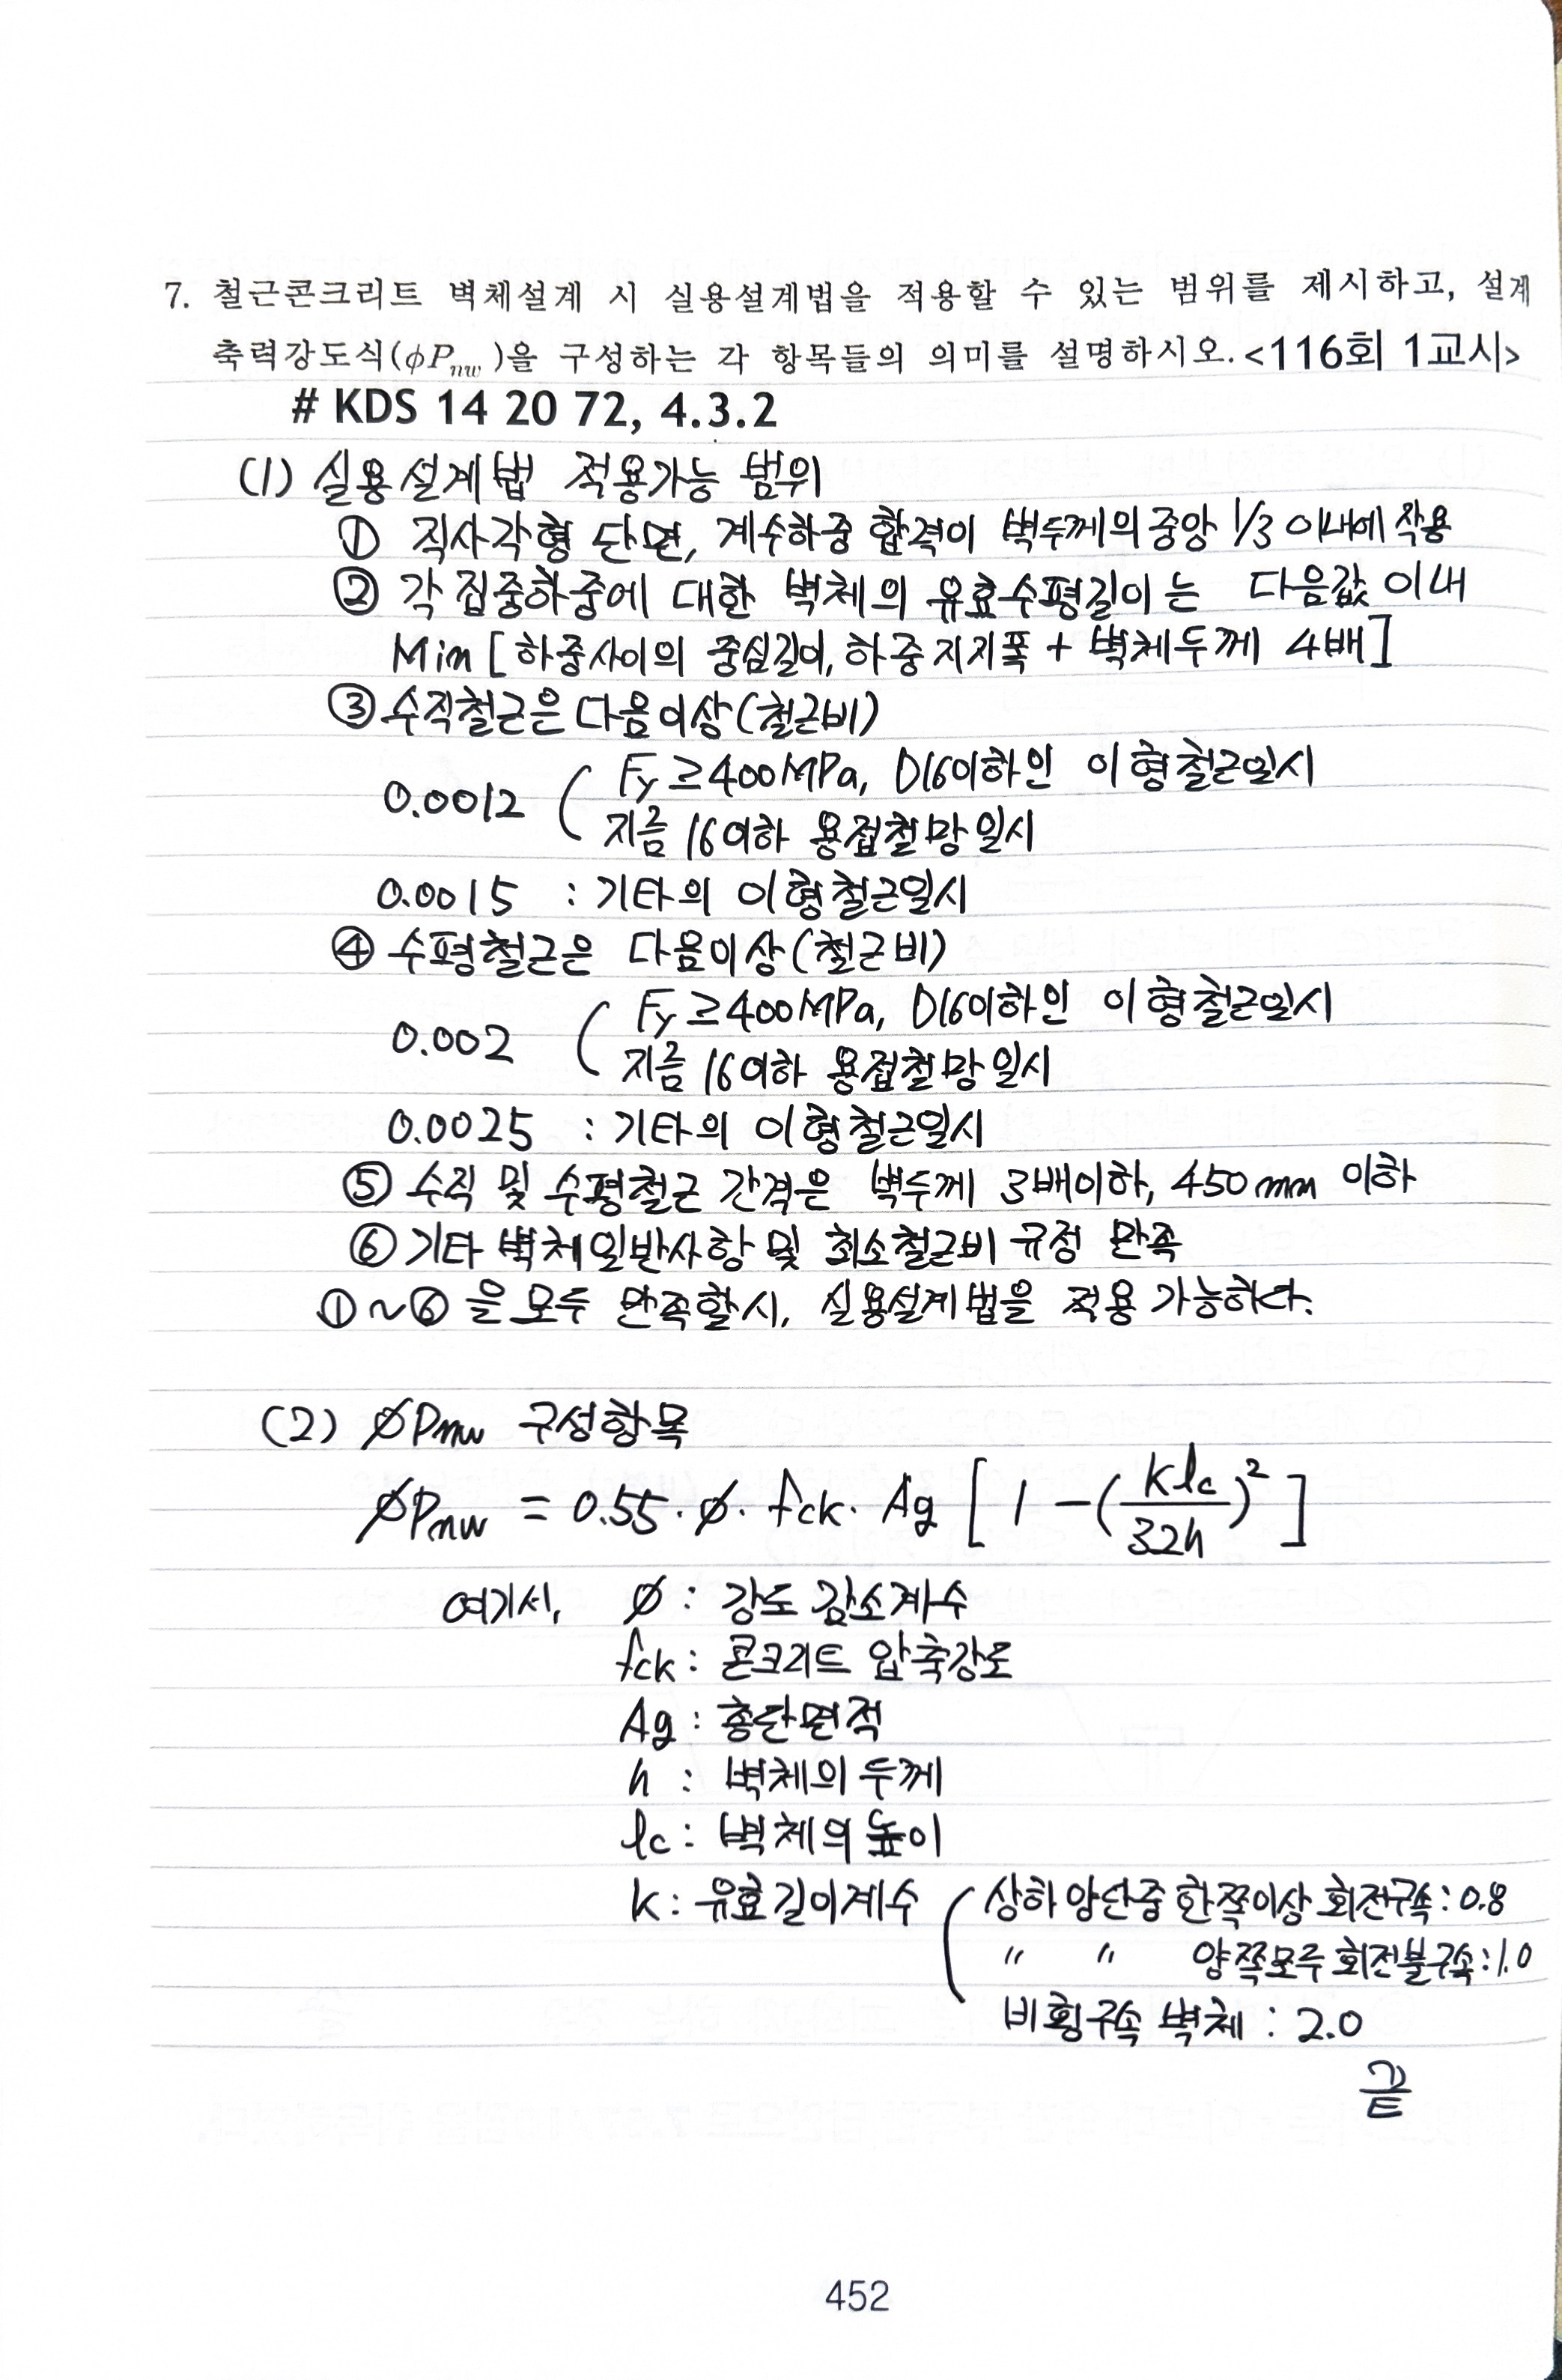 7. 철근콘크리트 벽체설계 시 실용설계법을 적용할 수 있는 범위를 제시하고, 설계
축력강도식(φPnw)을 구성하는 각 항목들의 의미를 설명하시오.<116회 1교시>
# KDS 14 20 72, 4.3.2
(1) 실용설계법 적용가능 범위
① 직사각형 단면, 계수하중 합력이 벽두께의 중앙 1/3 이내에 작용
② 각 집중하중에 대한 벽체의 유효수평길이는 다음값 이내
Min [하중사이의 중심길이, 하중지지폭 + 벽체두께 4배]
③ 수직철근은 다음이상(철근비)
0.0012 ( Fy ≥ 400MPa, D16이하인 이형철근일시
지름 16이하 용접철망일시
0.0015 : 기타의 이형철근일시
④ 수평철근은 다음이상(철근비)
0.002 ( Fy ≥ 400MPa, D16이하인 이형철근일시
지름 16이하 용접철망일시
0.0025 : 기타의 이형철근일시
⑤ 수직 및 수평철근 간격은 벽두께 3배이하, 450mm 이하
⑥ 기타 벽체일반사항 및 최소철근비 규정 만족
①~⑥을 모두 만족할시, 실용설계법을 적용 가능하다.
(2) φPnw 구성항목
φPnw = 0.55·φ·fck·Ag [1-(klc/32h)²]
여기서, φ : 강도감소계수
fck : 콘크리트 압축강도
Ag : 총단면적
h : 벽체의 두께
lc : 벽체의 높이
k : 유효길이계수 ( 상하 양단중 한쪽이상 회전구속 : 0.8
〃 〃 양쪽모두 회전불구속 : 1.0
비횡구속 벽체 : 2.0
끝
452